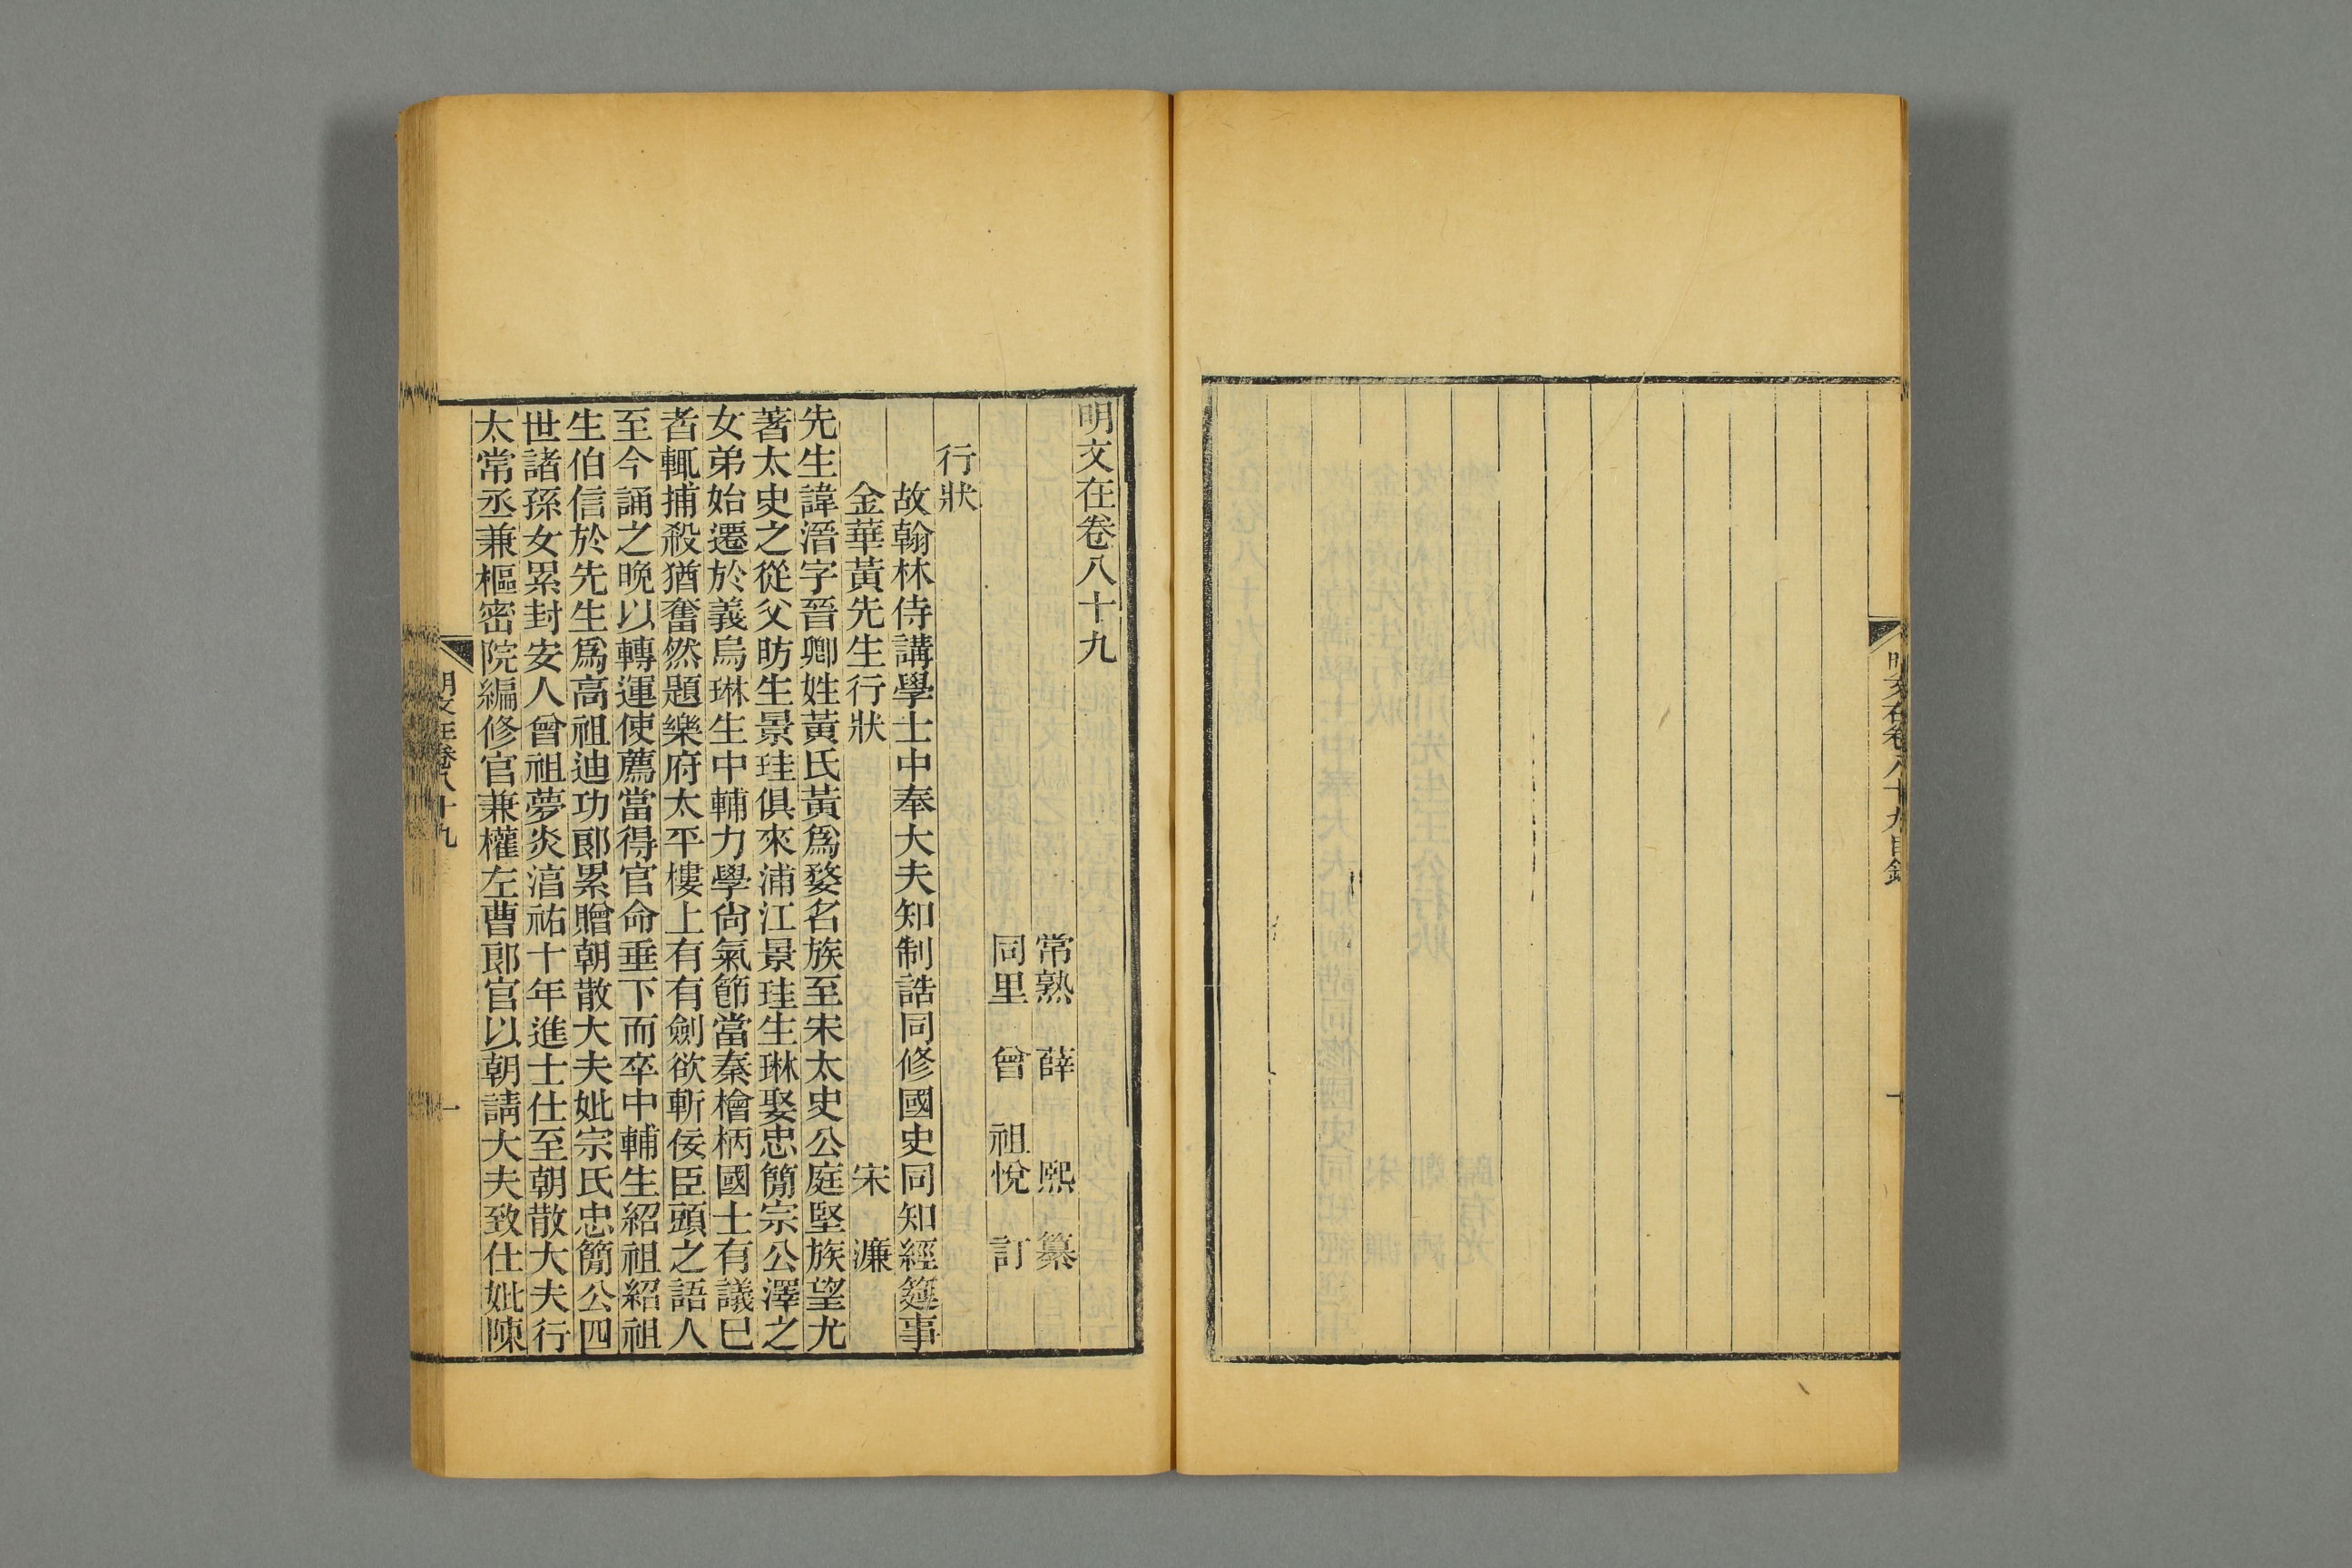 明文在卷八十九目錄
明文在卷八十九
常熟 薛 熙 纂
同里 曾 祖悅 訂
行狀
故翰林侍講學士中奉大夫知制誥同修國史同知經筵事
金華黃先生行狀 宋 濂
先生諱溍字晉卿姓黃氏黃爲婺名族至宋太史公庭堅族望尤
著太史之從父昉生景珪俱來浦江景珪生琳娶忠簡宗公澤之
女弟始遷於義烏琳生中輔力學尙氣節當秦檜柄國士有議已
者輒捕殺猶奮然題樂府太平樓上有有劍欲斬佞臣頭之語人
至今誦之晚以轉運使薦當得官命垂下而卒中輔生紹祖紹祖
生伯信於先生爲高祖迪功郞累贈朝散大夫妣宗氏忠簡公四
世諸孫女累封安人曾祖夢炎淯祐十年進士仕至朝散大夫行
太常丞兼樞密院編修官兼權左曹郞官以朝請大夫致仕妣陳
明文在卷八十九
一